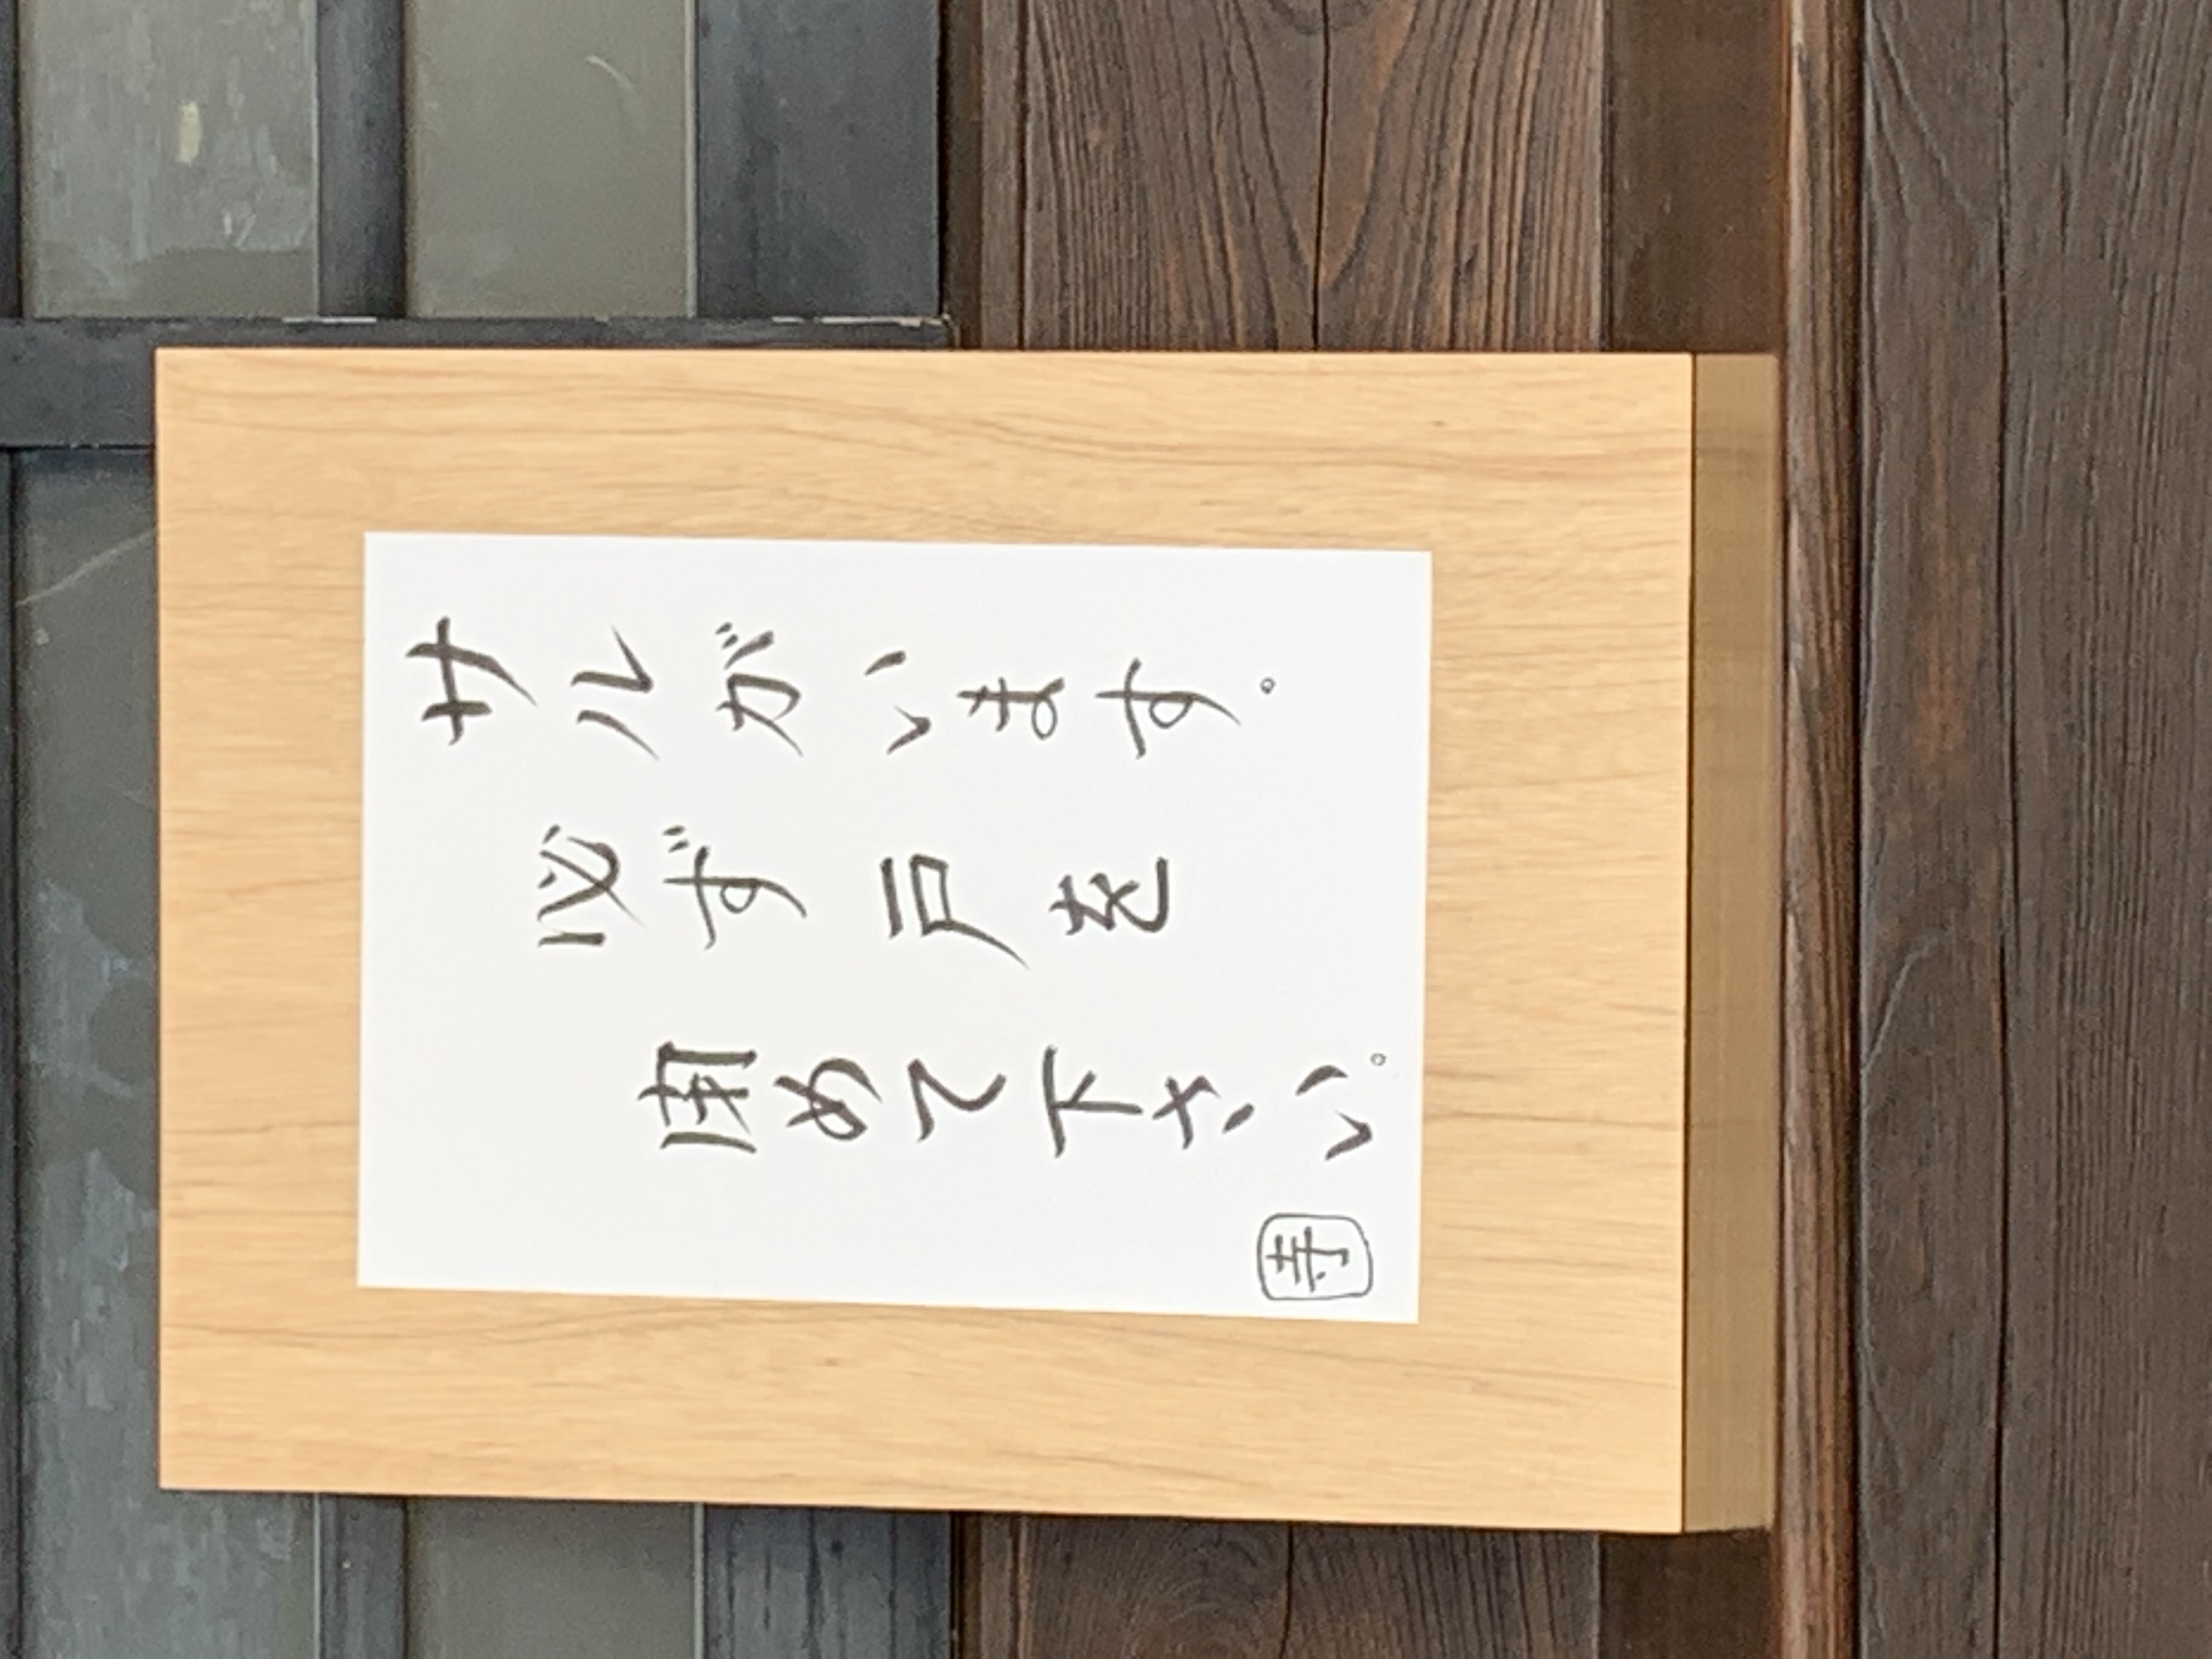 サルがいます。
必ず戸を
閉めて下さい。
寺